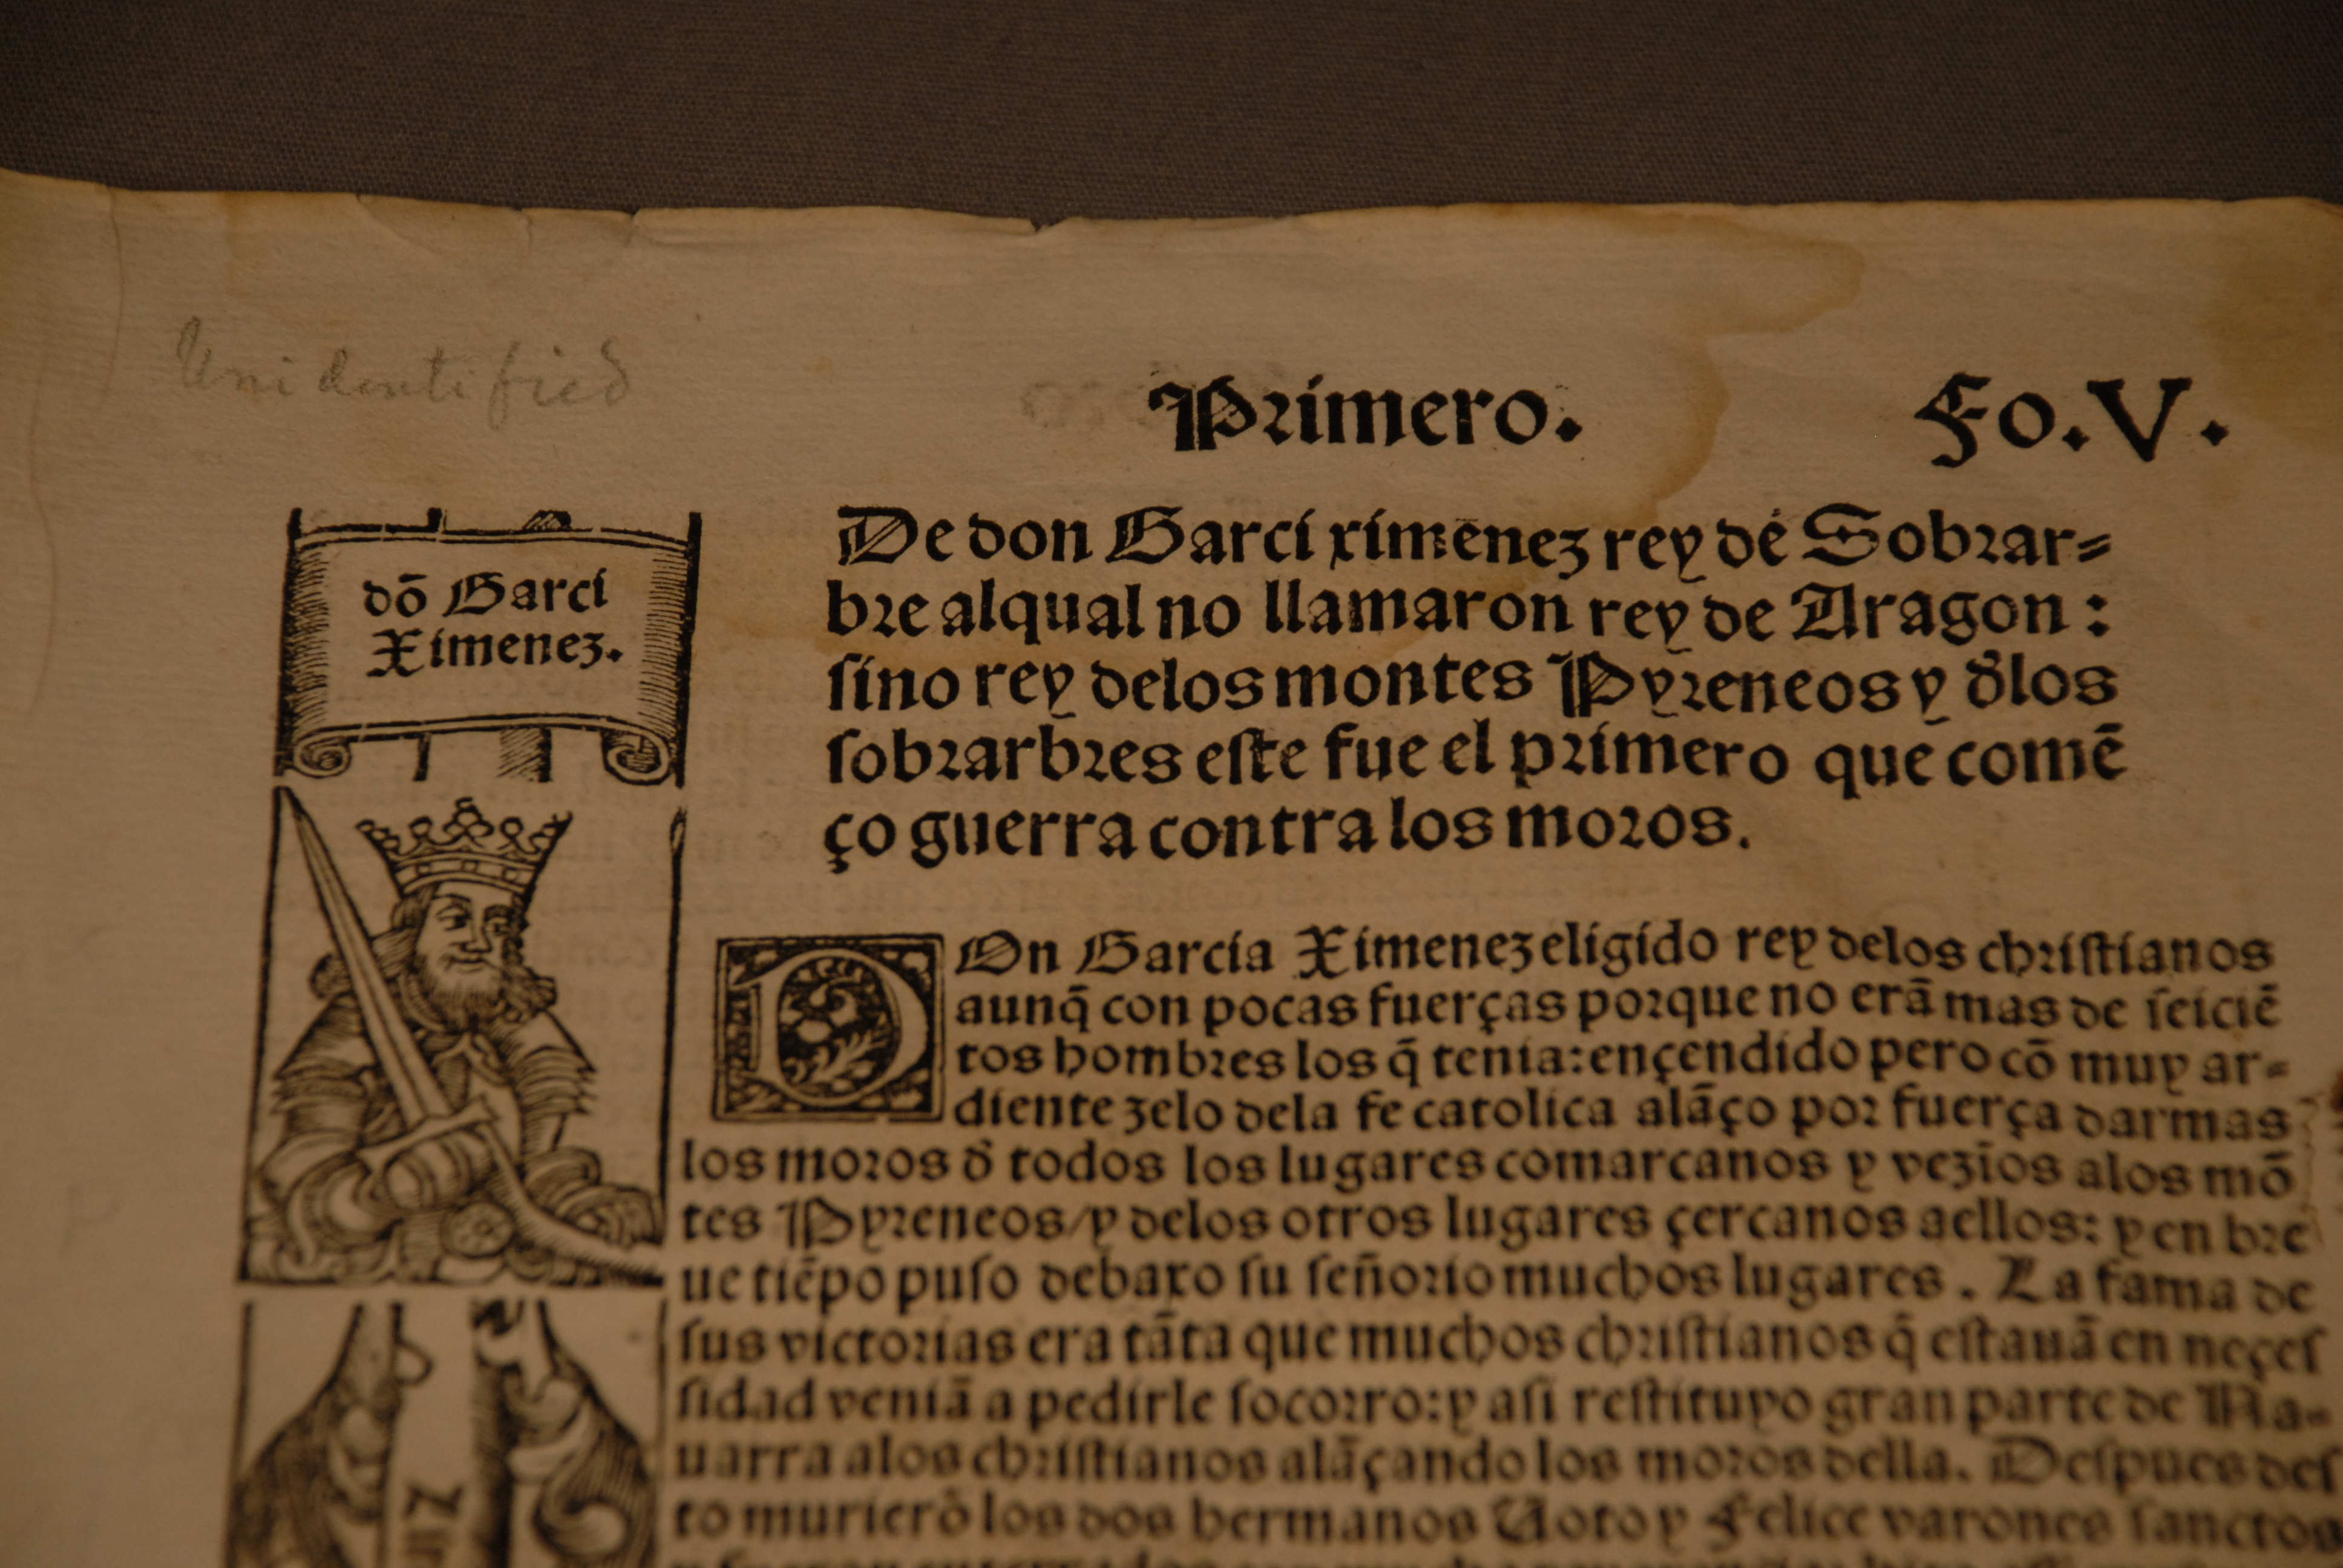 Unidentified
Primero.
Fo.V.
dõ Garci
Ximenez.
De don Garci ximenez rey de Sobrar=
bre alqual no llamaron rey de Aragon :
ſino rey delos montes Pyreneos y d̃los
ſobrarbres eſte fue el primero que comẽ
ço guerra contra los moros.
DOn Garcia Ximenez eligido rey delos chriſtianos
aunq̃ con pocas fuerças porque no erã mas de ſeiciẽ
tos hombres los q̃ tenia: ençendido pero cõ muy ar=
diente zelo dela fe catolica alãço por fuerça darmas
los moros d̃ todos los lugares comarcanos y vezios alos mõ
tes Pyreneos/y delos otros lugares çercanos aellos: y en bre
ue tiẽpo puſo debaxo ſu ſeñorio muchos lugares. La fama de
ſus victorias era tãta que muchos chriſtianos q̃ eſtauã en neçeſ
ſidad veniã a pedirle ſocorro: y aſi reſtituyo gran parte de Na=
uarra alos chriſtianos alãçando los moros della. Deſpues deſ
to murierõ los dos hermanos Uoto y Felice varones ſanctos